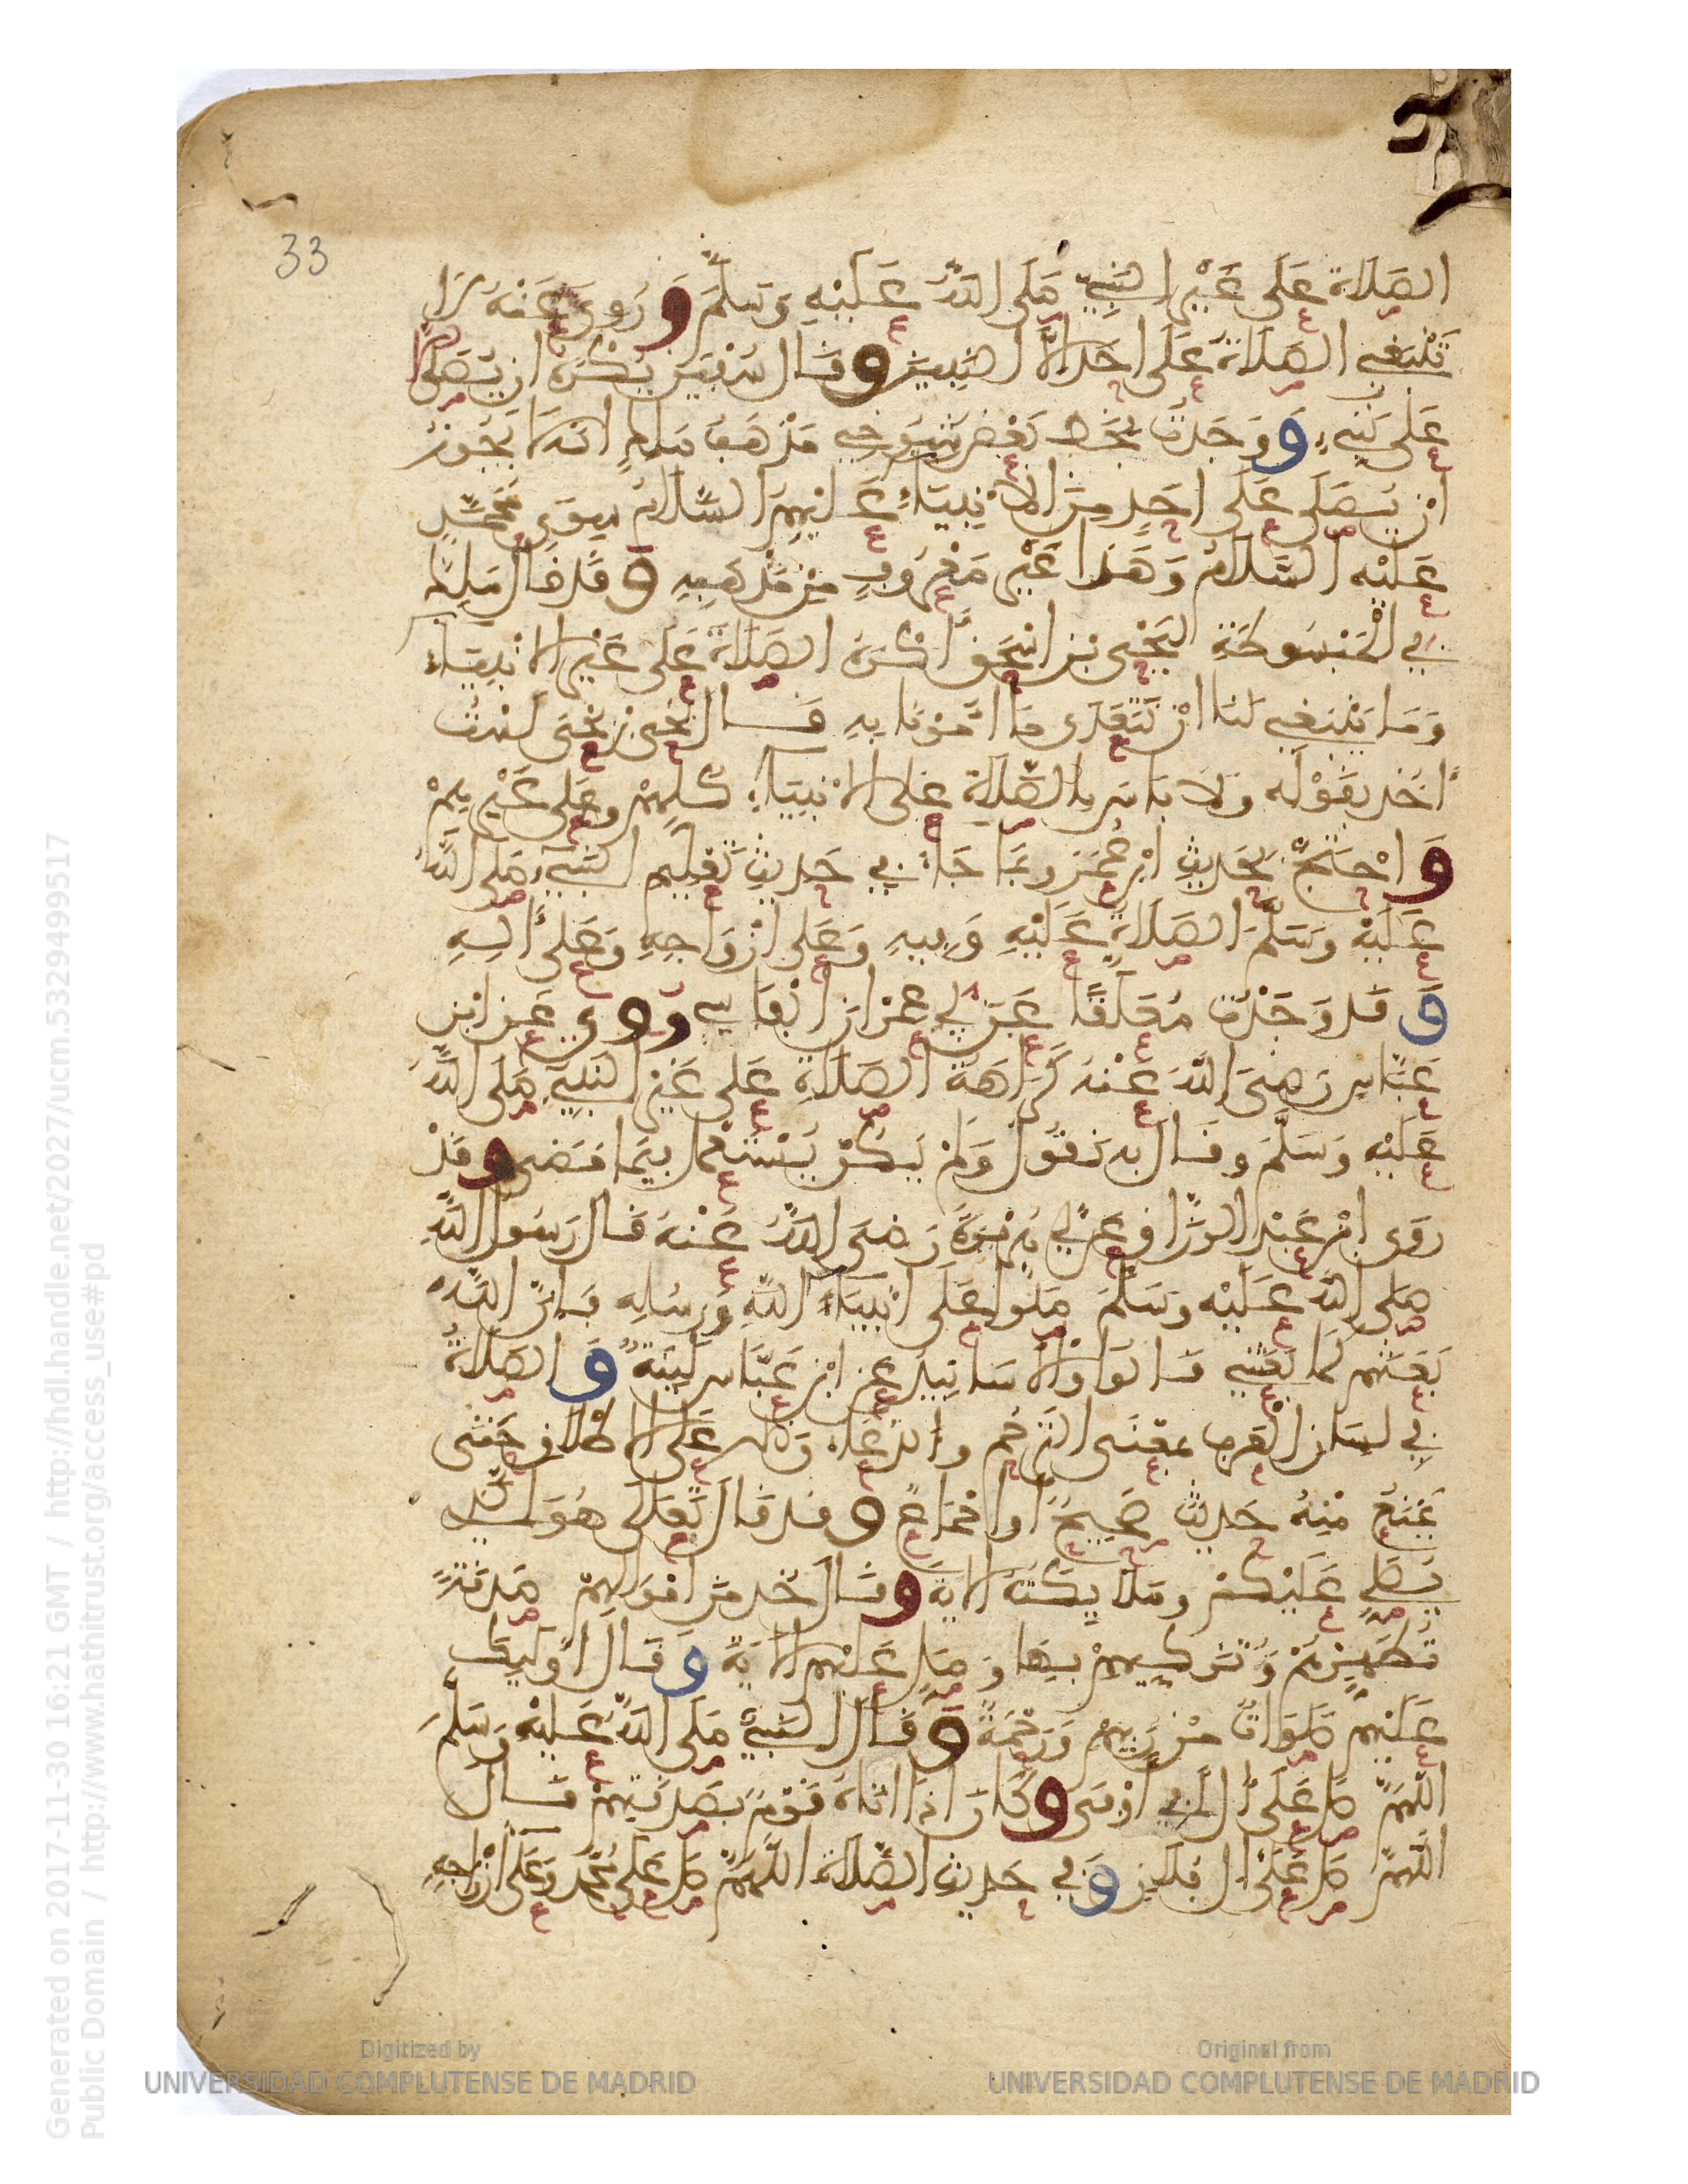 33
الصَّلَاة عَلَى غَيْرِ النَّبِيّ صَلَى اللَّهُ عَلَيْهِ وَسَلَّمَ وَرُوِيَ عَنْهُ لَا
تَنْبَغِي الصَّلَاةُ عَلَى أحَدٍ إلَّا النبيين وقَال سُفْيَن يُكْرَهُ ان يُصَلَّى إلا
عَلَى نَبِيٍّ وَوَجَدتُ بِخَط بَعْضِ شُيُوخِي مَذْهَبُ مَلِكٍ انَه لَا يَجُوزُ
أنْ يُصَلَّى عَلَى احَدٍ مِنَ الانْبِيَاءِ عَلَيْهِمُ السَّلَامُ سِوَى مُحَمَّدٍ
عَلَيْه السَّلَامُ وَهَذَا غَيْرُ مَعْرُوفٍ مِنْ مَذْهَبِهِ وَقَد قَال مَلِك
فِي الْمَبْسُوطَةِ لِيَحْيَى بْن اسْحَق أكْرَهُ الصَّلَاةَ عَلَى غَيْرِ الانْبِيَاءِ
وَمَا يَنْبَغِي لَنَا انْ نَتَعَدَّى مَا أُمِرْنَا بِهِ قَال يَحْيَى بْن يَحْيَى لَسْتُ
أاخُذ بِقَوْلِه وَلَا بَاس بِالصَّلَاة عَلَى الانْبِيَاءِ كُلِهِمْ وعَلَى غَيْرِهِمْ
وَاحْتَجَّ بِحَدِيثِ ابْنِ عُمَرَ وبِمَا جَاءَ فِي حَدِيثِ تَعْلِيمِ النَّبِيِّ صَلَى اللَّهُ
عَلَيْهِ وَسَلَّمَ الصَّلَاةَ عَلَيْهِ وَفِيهِ وَعَلَى ازْوَاجِهِ وَعَلَى ءالِهِ
وَقَد وَجَدْتُ مُعَلَّقًا عَنَ ابِي عِمْرَانَ الْفَاسِي رَوَى عَنِ ابْنِ
عَبَّاسٍ رَضِيَ اللَّهُ عَنْهُ كَرَاهَةَ الصَّلَاةِ عَلَى غَيْرِ النَّبِيِّ صَلَى اللَّهُ
عَلَيْهِ وَسَلَّمَ وقَالَ بِهِ نَقُولُ وَلَمْ يَكُنْ يُسْتَعْمَل فِيمَا مَضَى وَقَدْ
رَوَى ابْنُ عَبْد الرَّزَّاق عَنَ ابِي هُرَيْرَةَ رَضِيَ اللَّهُ عَنْهُ قَال رَسُولُ اللَّهِ
صَلى اللَّهُ عَلَيْه وَسَلَّمَ صَلُّوا عَلَى انْبِيَاءِ اللَّهِ وَرُسُلِه فَإنَّ اللَّهَ
بَعَثَهُم كَمَا بَعَثَنِي قَالُوا وَالاسَانِيد عن ابْن عَبَّاسٍ لَيِّنَةٌ وَالصَّلَاةُ
فِي لِسَان الْعَرَب بِمَعْنَى التَرَحُّم والدُّعَاء وَذَلِك عَلَى الاطْلَاق حَتَّى
يَمْنَعَ مِنْهُ حَدِيثٌ صَحِيحٌ أوِ اجْمَاعٌ وقَد قَال تَعَلَى هُوَ الَّذِي
يُصَلِّي عَلَيْكُمْ ومَلَائِكَتُهُ الايَةَ وقَال خُذ مِنَ امْوَالِهِمْ صَدَقَةً
تُطَهِّرُهُمْ وَتُزَكِيهِمْ بِهَا وَصَلِّ عَلَيْهِم الايَةَ وَقَالَ أوْلَيِكَ
عَلَيْهِمْ صَلَوَاتٌ مِنْ رَبِّهِمْ وَرَحْمَةٌ وَقَالَ النَّبِيُّ صَلَى اللَّهُ عَلَيْهِ وَسَلَّمَ
اللَّهُمَّ صَلِّ عَلَى ءالِ ابِي أوْفَى وكَانَ اذَا اتَاهُ قَوْمٌ بِصَدَقَتِهِمْ قَالَ
اللَّهُمَّ صَلِّ عَلَى ءالِ فُلَانٍ وَفِي حَدِيثِ الصَّلَاة اللَّهُمَّ صَلِّ عَلَى مُحَمَّدٍ وَعَلَى أزْوَاجِهِ
Generated on 2017-11-30 16:21 GMT / http://hdl.handle.net/2027/ucm.5329499517
Public Domain / http://www.hathitrust.org/access_use#pd
Digitized by
UNIVERSIDAD COMPLUTENSE DE MADRID
Original from
UNIVERSIDAD COMPLUTENSE DE MADRID